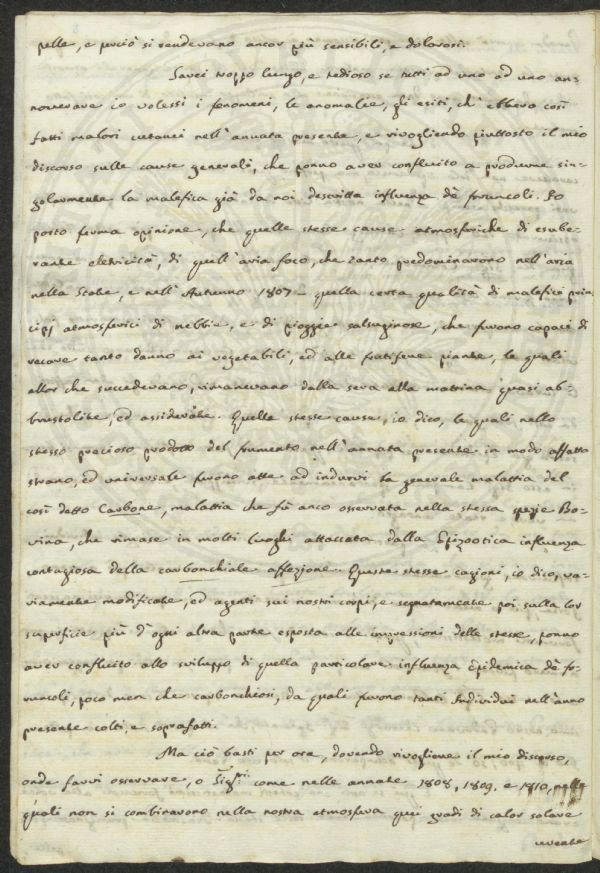 pelle, e perciò si rendevano ancor più sensibili, e dolorosi.
Sarei troppo lungo, e tedioso se tutti ad uno ad uno an-
noverare io volessi i fenomeni, le anomalie, gli esiti, ch'ebbero così
fatti malori cutanei nell'annata presente, e rivogliendo piuttosto il mio
discorso sulle cause generali, che ponno aver confluito a produrne sin-
golarmente la malefica già da noi descritta influenza dè foruncoli. Io
porto ferma opinione, che quelle stesse cause atmosferiche di esube-
rante eletricità, di quell'aria foco, che tanto predominarono nell'aria
nella State, e nell'Autunno 1807 quella certa qualità di malefici prin
cipj atmosferici di nebbie, e di pioggie salsuginose, che furono capaci di
recare tanto danno ai vegetabili, ed alle frutifere piante, le quali
allor che succedevano, rimanevano dalla sera alla matrina quasi ab-
brustolite, ed assiderate. Quelle stesse cause, io dico, le quali nello
stesso precioso prodotto del frumento nell'annata presente in modo affatto
strano, ed universale furono atte ad indurvi la generale malattia del
così detto Carbone, malattia che fù anco osservata nella stessa spezie Bo-
vina, che rimase in molti luoghi attaccata dalla Epizootica influenza
contagiosa della carbonchiale affezione. Queste stesse cagioni, io dico, va-
riamente modificate, ed agenti sui nostri corpi, e segnatamente poi sulla lor
superficie più d'ogni altra parte esposta alle impressioni delle stesse, ponno
aver confluito allo sviluppo di quella particolare influenza Epidemica dè fo-
runcoli, poco men che carbonchiosi, da quali furono tanti Individui nell'anno
presente colti, e soprafatti.
Ma ciò basti per ora, dovendo rivogliere il mio discorso,
onde farvi osservare, o Sig.ri come nelle annate 1808, 1809. e 1810, nelle
quali non si combinarono nella nostra atmosfera quei gradi di calor solare
urente